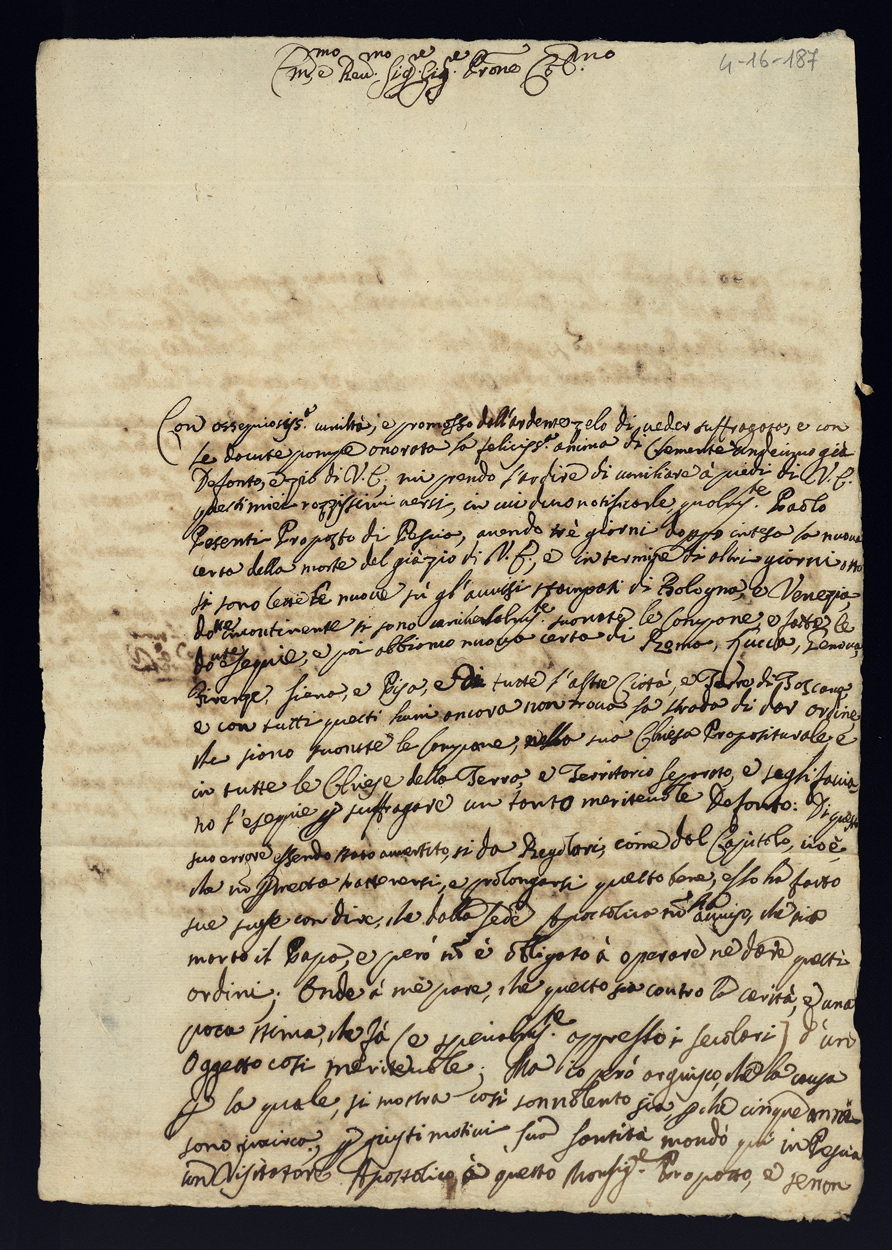 4-16-187
Em.mo e Reu.mo Sig.re Sig.re Prone Col.mo
Con ossequiosiss.e umiltà, e promosso dall'ardente zelo di ueder suffragata, e con
le douute pompe onorata la feliciss.a anima di Clemente undecimo già
Defonto, e zio di V. E. mi prendo l'ardire di umiliare à piedi di V. E.
questi miei rozzissimi uersi, in cui deuo notificarle qualm.te Paolo
Pesenti Proposto di Pescia, auendo trè giorni doppo intesa la nuoua
certa della morte del già zio di V. E., e in termine di altri giorni otto
si sono lette le nuoue sù gl'auuisi stampati di Bologna, e Venezia,
doue incontinente si sono uniuersalm.te suonate le Campane, e fatte le
dou.te esequie, e poi abbiamo nuoua certa di Roma, Lucca, Genoua,
Firenze, Siena, e Pisa, e di tutte l'altre Città, e Terre di Toscana,
e con tutti questi lumi ancora non troua la strada di dar ordine
che siano suonate le Campane, nella sua Chiesa Propositurale e
in tutte le Chiese della Terra, e Territorio separato, e segli faccia
no l'esequie p suffragare un tanto meriteuole Defonto: Di questo
suo errore essendo stato auuertito, si da Regolari, come dal Capitolo, cioè
che nō si debba trattenersi, e prolongarsi questo bene, esso hà fatto
sue scuse con dire, che dalla Sede Apostolica nō hà auuiso, che sia
morto il Papa, e però nō è obligato à operare ne dare questi
ordini; Onde à me pare, che questo sia contro la carità, e una
poca stima, che fà (e spezialm.te appresso i secolari) d'un
Oggetto così meriteuole; Ma io però arguisco che la causa
p la quale, si mostra così sonnolento sia, p che cinque anni
sono in circa, p giusti motiui Sua Santità mandò quì in Pescia
un Visitatore Apostolico à questo Monsig.re Proposto, e senon